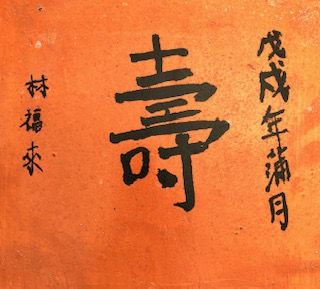 戊戌年蒲月
壽
林福來